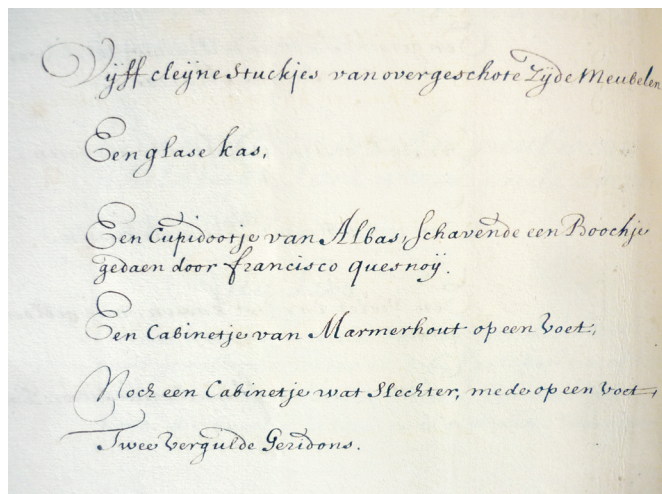 Vÿff cleÿne stuckjes van overgeschote Zÿde Meubelen
Een glase kas,
Een Cupidootje van Albas, schavende een Boochje
gedaen door francisco quesnoÿ.
Een Cabinetje van Marmerhout op een voet,
Noch een Cabinetje wat slechter, mede op een voet,
Twee vergulde Geridons.